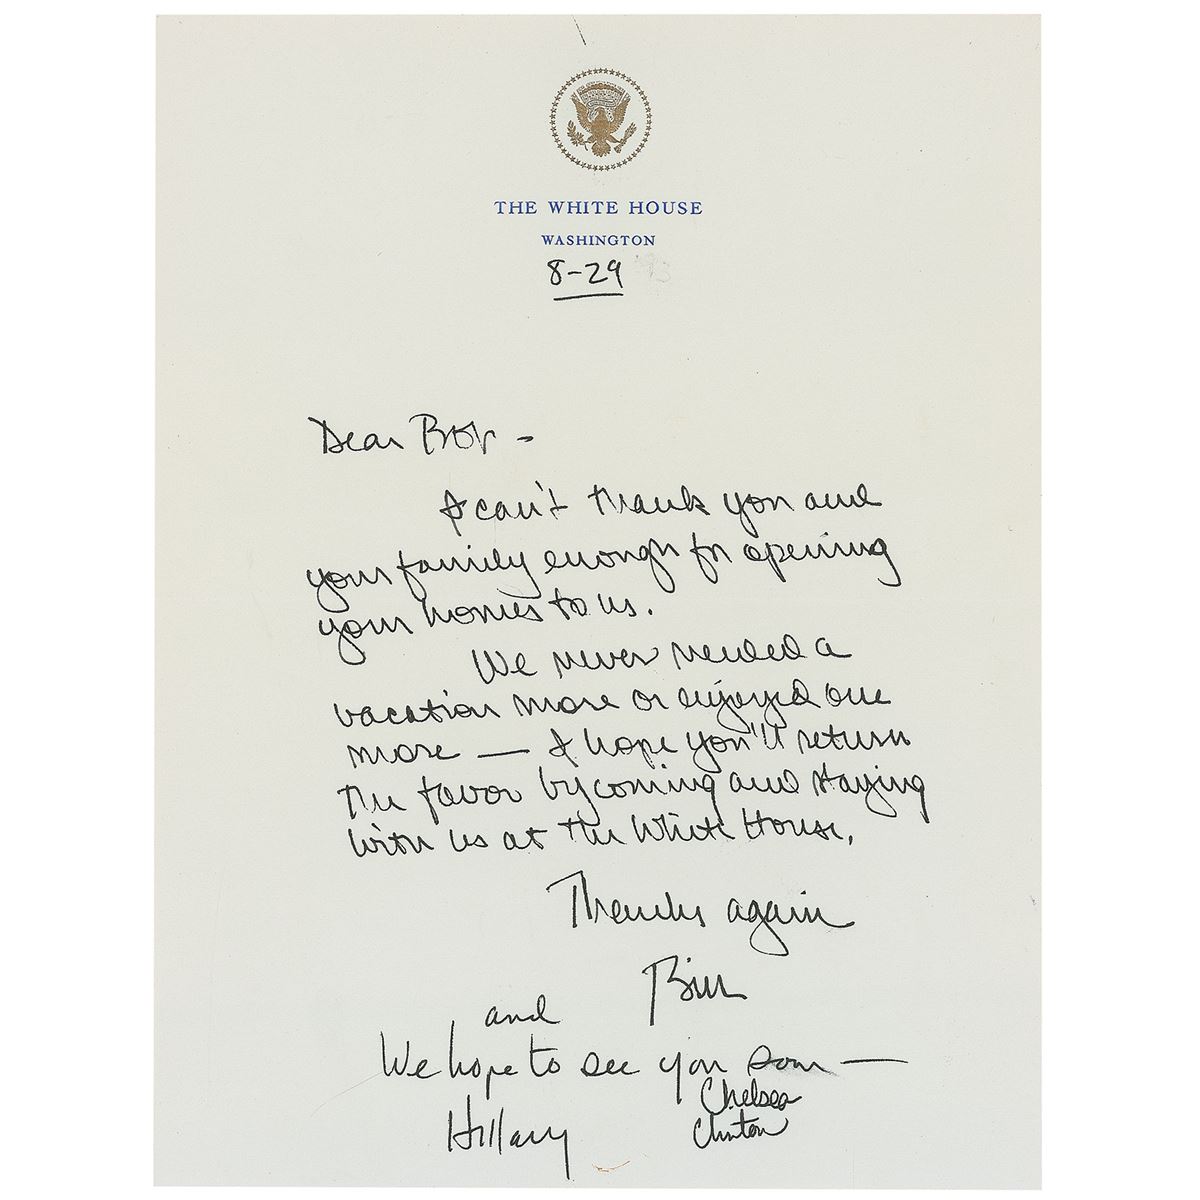 THE WHITE HOUSE
WASHINGTON
8-29 '93
Dear Bob -
I can't thank you and
your family enough for opening
your homes to us.
We never needed a
vacation more or enjoyed one
more — I hope you'll return
the favor by coming and staying
with us at the White House.
Thanks again
Bill
and
We hope to see you soon —
Chelsea
Hillary Clinton